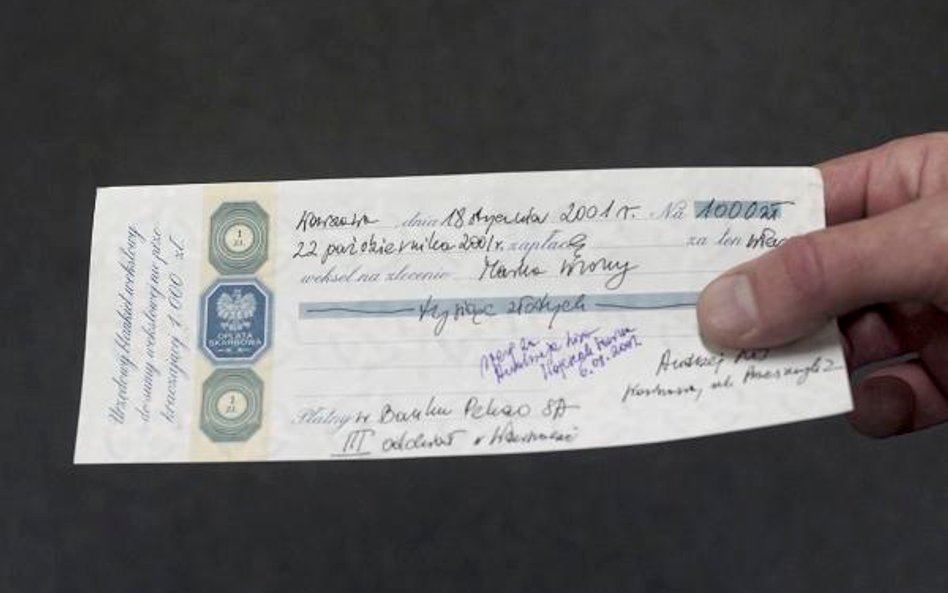 Urzędowy blankiet wekslowy
do sumy wekslowej nie prze
kraczającej 1 000 zł.
1
ZŁ
OPŁATA
SKARBOWA
1
ZŁ
Warszawa dnia 18 stycznia 2001 r. Na 1000 zł
22 października 2001 r. zapłacę za ten
weksel na zlecenie Marka Wrony
tysiąc złotych
6.01.2001
Andrzej
ul.
Płatny w Banku Pekao SA
III oddział w Warszawie